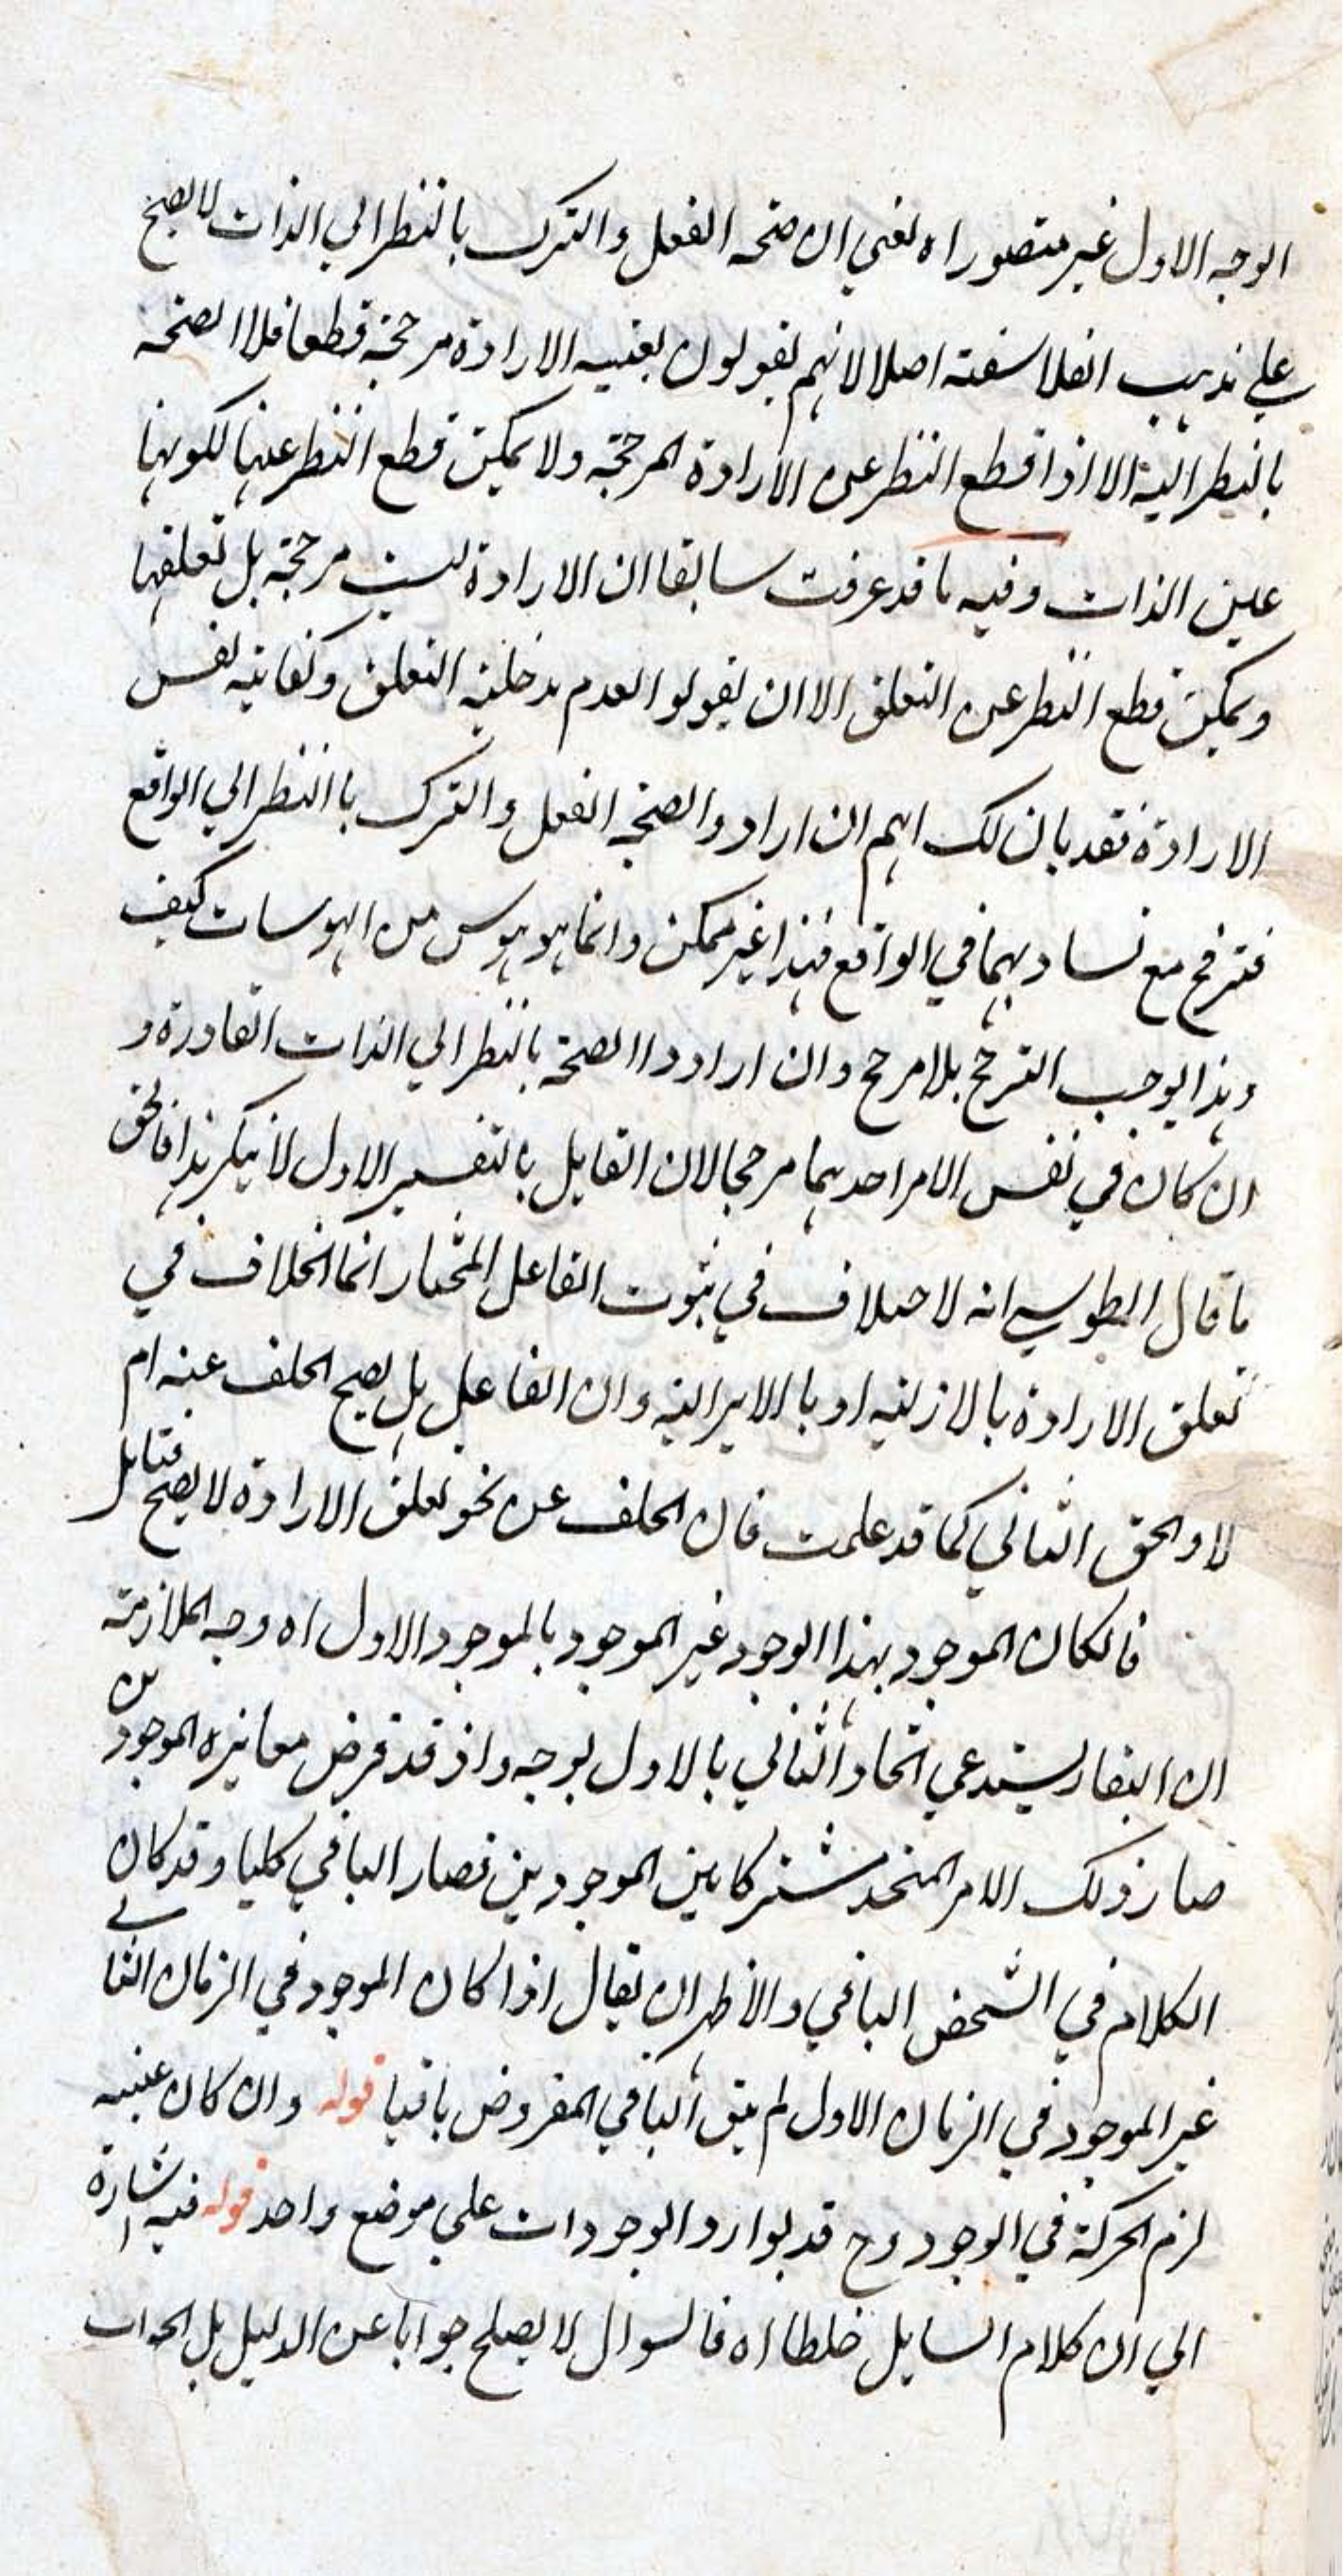 الوجه الاول غير متصور اه يعني ان صحة الفعل والترك بالنظر الي الذات لا يصح
علي مذهب الفلاسفة اصلا لانهم يقولون بعينية الارادة مرجحة قطعا فلا الصحة
بالنظر اليه الا اذا قطع النظر عن الارادة المرجحة ولا يمكن قطع النظر عنها لكونها
عين الذات وفيه ما قد عرفت سابقا ان الارادة ليست مرجحة بل تعلقها
ويمكن قطع النظر عن التعلق الا ان يقولوا لعدم مدخلية التعلق وكفاية نفس
الارادة فقد بان لك انهم ان ارادوا الصحة الفعل والترك باالنظر الي الواقع
فترجح مع تساويهما في الواقع فهذا غير ممكن وانما هو هوس من الهوسات كيف
وهذا يوجب الترجح بلا مرجح وان ارادوا الصحة بالنظر الي الذات القادرة و
ان كان في نفس الامر احدهما مرجحا لان القايل بالتفسير الاول لا ينكر هذا فالحق
ما قال الطوسي انه لا خلاف في ثبوت الفاعل المختار انما الخلاف في
تعلق الارادة بالازلية او باالايزالية وان الفاعل هل يصح الخلف عنه ام
لا والحق الثاني كما قد علمت فان الخلف عن نحو تعلق الارادة لا يصح فتامل
فالكان الموجود بهذا الوجود غير الموجود بالموجود الاول اه وجه الملازمة
ان البقاء يستدعي اتحاد الثاني بالاول بوجه واذ قد فرض مغايرة الموجودين
صار ذلك الامر المتحد مشتركا بين الموجودين فصار الباقي كليا وقد كان
الكلام في الشخص الباقي والاظهر ان يقال اذا كان الموجود في الزمان الثاني
غير الموجود في الزمان الاول لم يبق الباقي المفروض باقيا قوله وان كان عينه
لزم الحركة في الوجود وح قد يوارد الوجودات علي موضع واحد قوله فيه اشارة
الي ان كلام السايل خلطا اه فالسوال لا يصلح جوابا عن الدليل بل الجواب